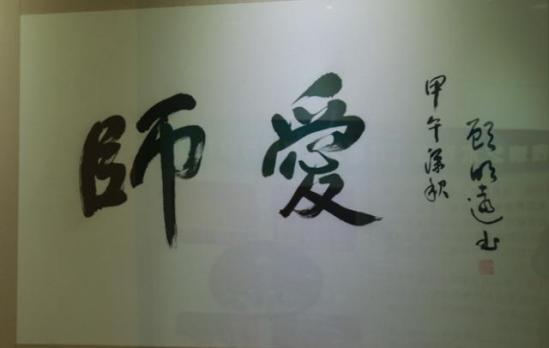 師愛
甲午深秋
顾明遠书